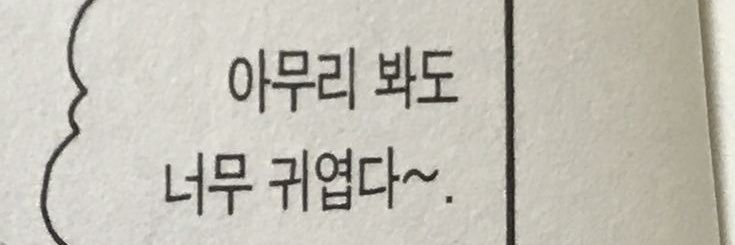 아무리 봐도
너무 귀엽다~.